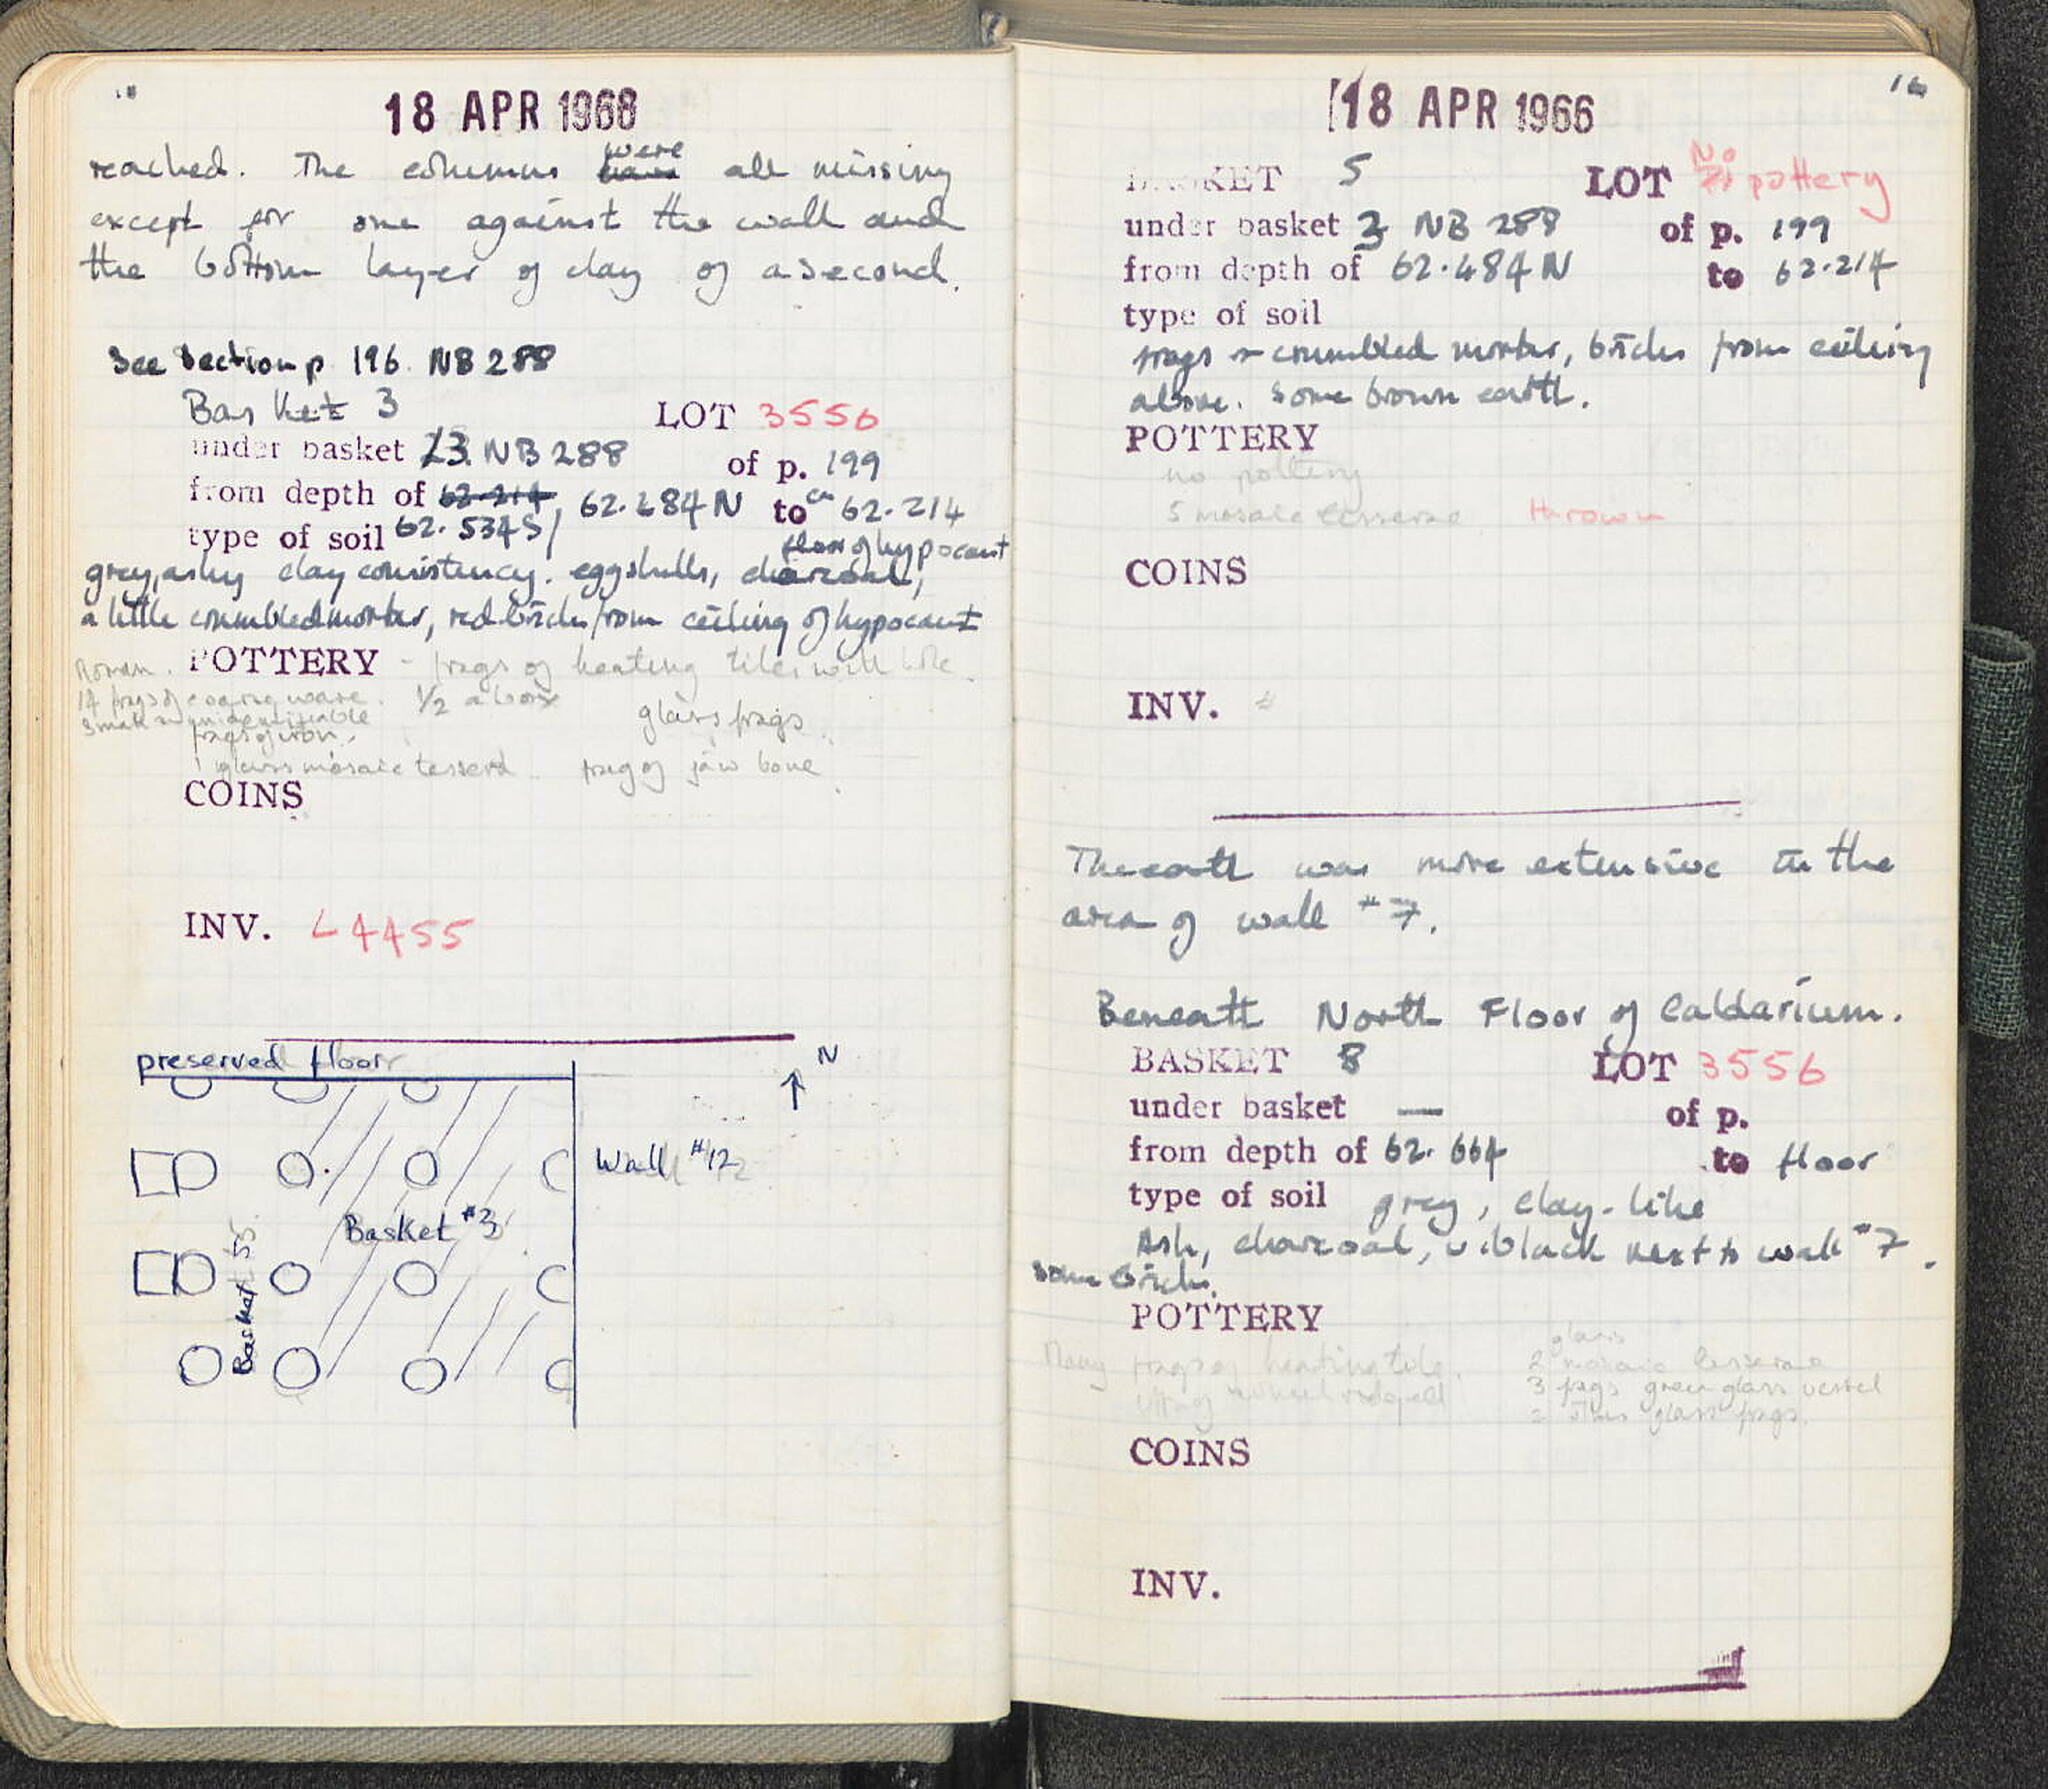 18 APR 1966
reached. The columns were all missing
except for one against the wall and
the bottom layer of clay of a second.
See Section p 196. NB 288
Basket 3 LOT 3556
under basket 3 NB 288 of p. 199
from depth of 62.214, 62.484 N to ca 62.214
type of soil 62.534 S / floor of hypocaust
grey, ashy clay consistency. eggshells, charcoal,
a little crumbled mortar, red bricks from ceiling of hypocaust
Roman. POTTERY - frags of heating tiles with hole
14 frags of coarse ware. 1/2 a
small unidentifiable glass frags
frags of iron.
1 glass mosaic tessera frag of jaw bone
COINS
INV. L4455
preserved floor N
Wall #12
Basket #3
Basket 5
16
18 APR 1966
BASKET 5 LOT No pottery
under basket 3 NB 288 of p. 199
from depth of 62.484 N to 62.214
type of soil
frags crumbled mortar, bricks from ceiling
above. Some brown earth.
POTTERY
no pottery
5 mosaic tesserae thrown
COINS
INV.
The earth was more extensive in the
area of wall #7.
Beneath North Floor of Caldarium.
BASKET 8 LOT 3556
under basket — of p.
from depth of 62.664 to floor
type of soil grey, clay-like
Ash, charcoal, v. black next to wall #7.
some bricks.
POTTERY
glass
Many frags of heating tile. 2 mosaic tesserae
3 frags green glass vessel
2 glass frags.
COINS
INV.